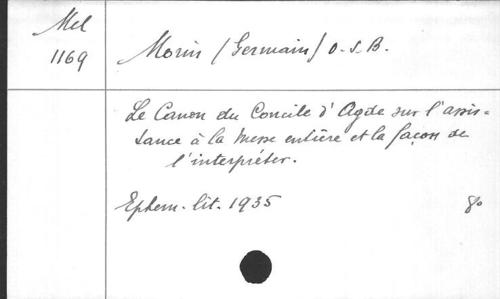 Mel
1169
Morin (Germain) O.S.B.
Le Canon du Concile d'Agde sur l'assis=
tance à la messe entière et la façon de
l'interpréter.
Ephem. lit. 1935
8°